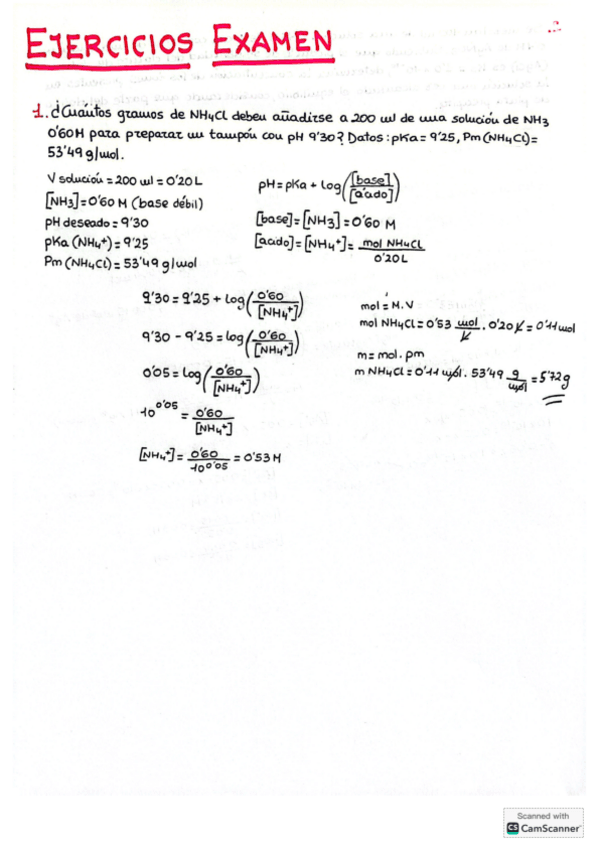 EJERCICIOS EXAMEN
1. ¿Cuántos gramos de NH4Cl deben añadirse a 200 ml de una solución de NH3
0'60M para preparar un tampón con pH 9'30? Datos: pKa = 9'25, Pm(NH4Cl) =
53'49 g/mol.
V solución = 200 ml = 0'20L
[NH3] = 0'60 M (base débil)
pH deseado = 9'30
pKa (NH4+) = 9'25
Pm (NH4Cl) = 53'49 g/mol
pH = pKa + log([base]/[ácido])
[base] = [NH3] = 0'60 M
[ácido] = [NH4+] = mol NH4Cl/0'20L
9'30 = 9'25 + log(0'60/[NH4+])
9'30 - 9'25 = log(0'60/[NH4+])
0'05 = log(0'60/[NH4+])
10^0'05 = 0'60/[NH4+]
[NH4+] = 0'60/10^0'05 = 0'53 M
mol = M.V
mol NH4Cl = 0'53 mol/L . 0'20 L = 0'11 mol
m = mol. pm
m NH4Cl = 0'11 mol . 53'49 g/mol = 5'72g
Scanned with
CS CamScanner